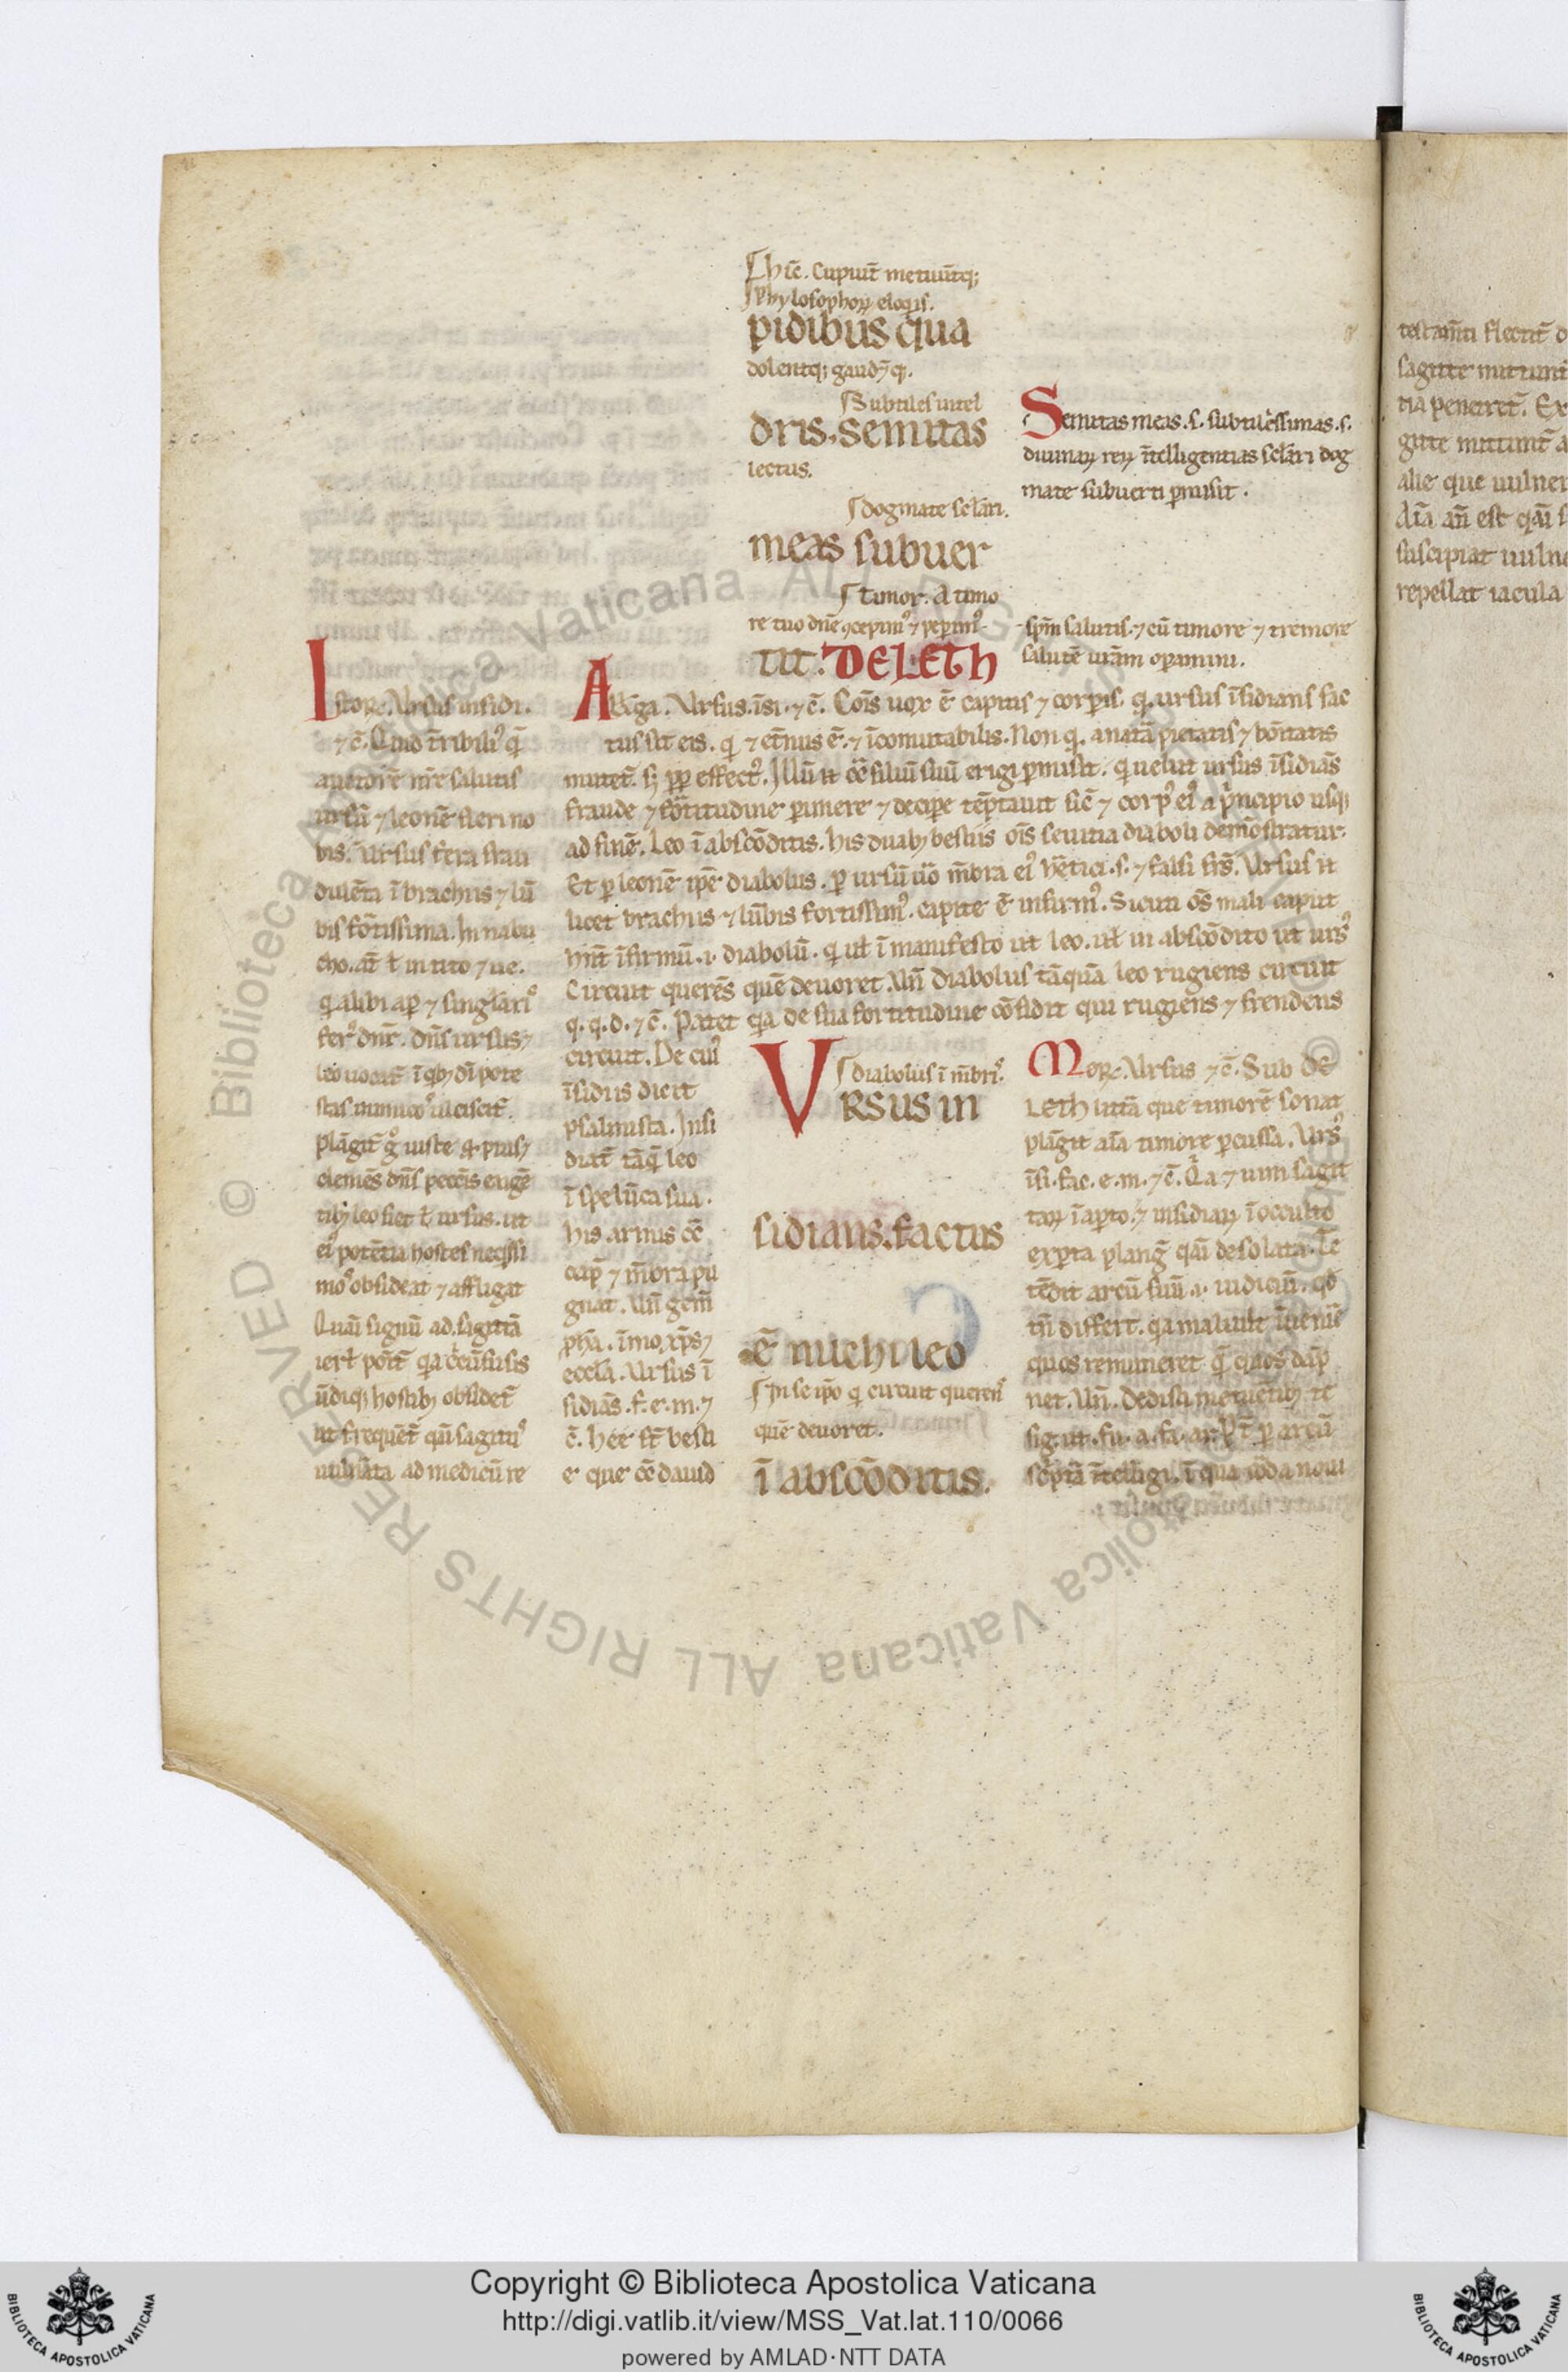 Hīc. cupiūt metuūtq;
Phylosophoꝝ eloqiis.
pidibus qua
dolentq; gaudēq.
Subtiles intel
dris. semitas
lectus.
dogmate seculari.
meas subuer
timor. A timo
re tuo dñe ꝯcepimꝰ ⁊ peperimꝰ
tit. DELETH
Semitas meas. s. subtilissimas. s.
diuinaꝝ reꝝ ītelligentias sclari dog
mate subuerti ꝑmisit.
spm̄ salutis. ⁊ cū timore ⁊ tremore
salutē urām oꝑamini.
Istorᷓ. Ursus insidi.
⁊ c̄. Quid tribiliꝰ q̄
auctorē nr̄e salutis
ursū ⁊ leonē fieri no
bis. Ursus fera frau
dulēta ī brachiis ⁊ lū
bis fortissima. In nabu
cho. at̄ ł in tito ⁊ ue.
q alibi aꝑ ⁊ singlariꝰ
ferꝰ dnr̄. Dns̄ ursus ⁊
leo uocat̄ ī qbꝫ di pote
stas inimicoꝰ ulciscit̄.
plāgit gͦ iuste q pius ⁊
clemēs dn̄s peccīs engē
tibꝫ leo fiet ł ursus. ut
eiꝰ potētia hostes neqssi
moꝰ obsideat ⁊ affligat
Quasi signū ad sagittā
ierl̄ pōit̄ qa circūfusis
ūdiqꝫ hostibꝫ obsidet̄
ut frequēt̄ qi sagittꝰ
uulnata ad medicū re
Alliga. Ursus. īsi. ⁊ c̄. Cōis uox ē capitis ⁊ corporis. q. ursus īsidians fac
tus sit eis. q ⁊ et̄nus ē. ⁊ īcōmutabilis. Non q. a natā pietatis ⁊ bōitatis
mutet. sꝫ ꝓp effectꝰ. Illū .n. cē filiū suū erigi ꝑmisit. q uelut ursus īsidiās
fraude ⁊ fortitudine ꝑimere ⁊ decipe tēptauit sic ⁊ corpꝰ eiꝰ a principio usqꝫ
ad finē. Leo ī abscōditis. his duabꝫ bestiis oīs seuitia diaboli demōstratur.
Et ꝑ leonē ipē diabolus. ꝑ ursū uo m̄bra eiꝰ hetici. s. ⁊ falsi frs̄. Ursus .n.
licet brachiis ⁊ lūbis fortissimꝰ. capite ē infirmꝰ. Sicuti oēs mali caput
hn̄t īfirmū. i. diabolū. q ul̄ ī manifesto ut leo. ul̄ in abscōdito ut ursꝰ
Circuit querēs quē deuoret. Un̄ diabolus tāquā leo rugiens circuit
q. q. d. ⁊ c̄. Patet qa de sua fortitudine cōfidit qui rugiens ⁊ frendens
circuit. De cuiꝰ
īsidiis dicit
psalmista. Insi
diat̄ tāq leo
ī spelūca sua.
his armis cō
cap̄ ⁊ m̄bra pu
gnat. Un̄ gem̄
pha. īmo xp̄s ⁊
eccl̄a. Ursus ī
sidiās. f. e. m. ⁊
c̄. hee st̄ besti
e que cō dauid
diabolus ī m̄bris.
VRSUS in
sidians. factus
ē michi leo
In se ipo q circuit querens
quē deuoret.
ī abscōditis.
Mor. Ursus ⁊ c̄. Sub DE
LETh littā que timorē sonat
plāgit aīa timore ꝑcussa. Ursꝰ
īsi. fac. e. m. ⁊ c̄. Qa ⁊ uim sagit
taꝝ ī aꝑto. ⁊ insidiaꝝ ī occulto
exꝑta plang̃ qi desolata. Te
tēdit arcū suū. i. iudiciū. qd
tn̄ differt. qa mauult īuenire
quos remuneret q̄ quos dāp
net. Un̄. Dedisti metuētibꝫ te
sig. ut. fu. a. fa. ar. Pt̄ ꝑ arcū
scptā ītelligi. ī qua corda noui
testam̄ti flectit̄ d
sagitte mittunt̄
tia penetret̄. Ex
gitte mittunt̄ a
alie que uulner
Aīa an̄ est qi s
suscipiat uuln
repellat iacula
Copyright © Biblioteca Apostolica Vaticana
http://digi.vatlib.it/view/MSS_Vat.lat.110/0066
powered by AMLAD·NTT DATA
BIBLIOTECA APOSTOLICA VATICANA
BIBLIOTECA APOSTOLICA VATICANA